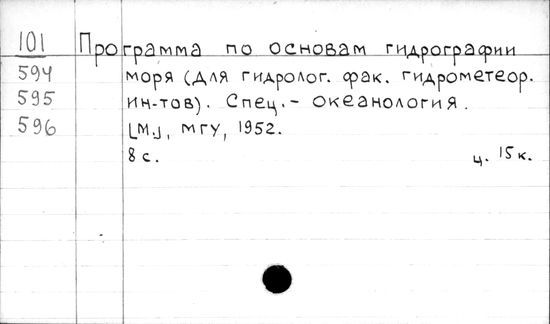 101 Программа по основам гидрографии
594 моря (для гидролог. фак. гидрометеор.
595 ин-тов). Спец. - океанология.
596 [М.], МГУ, 1952.
8 с. ц. 15 к.